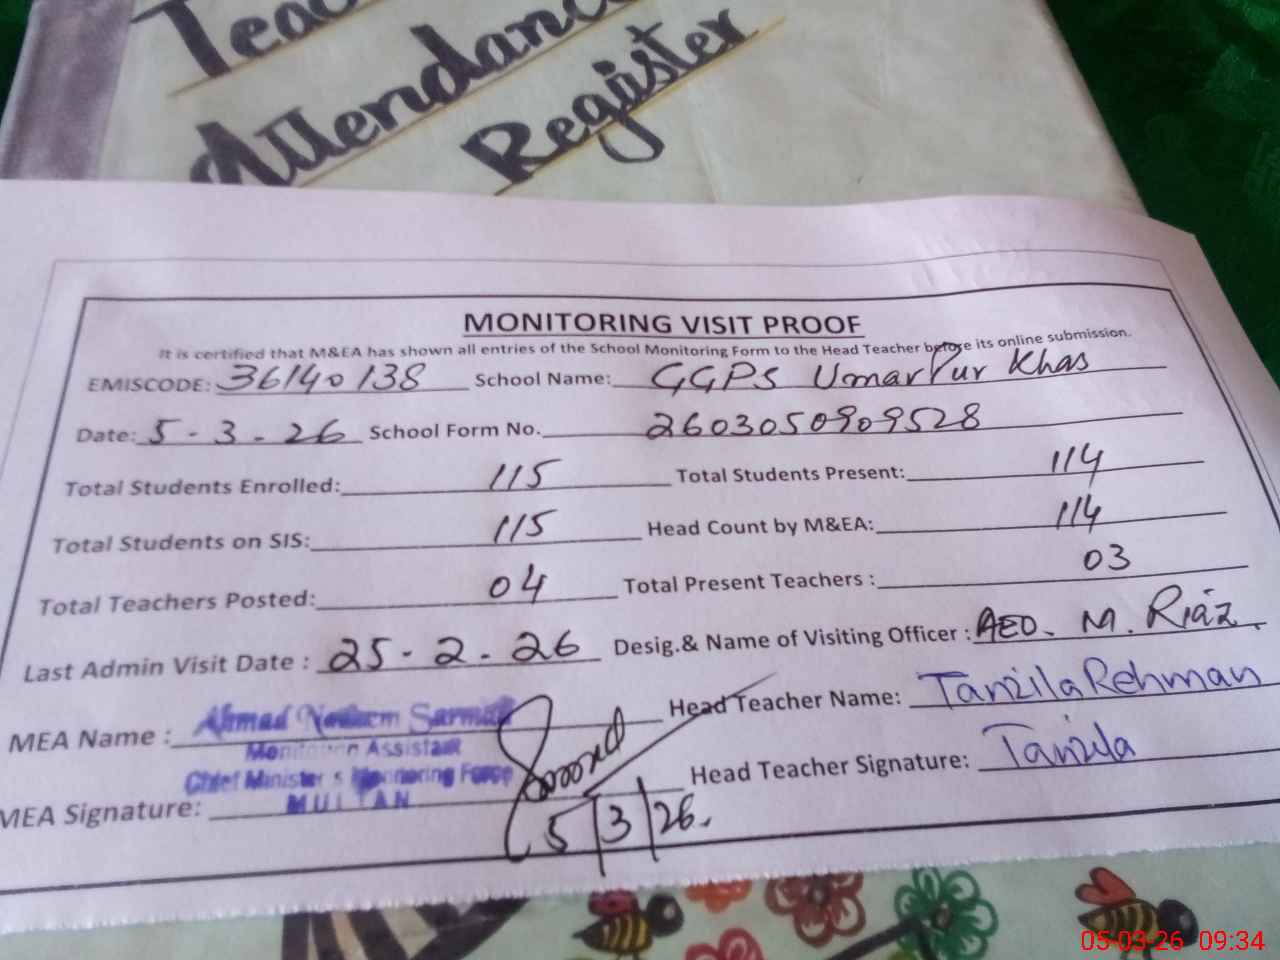 Attendanc
Register
MONITORING VISIT PROOF
It is certified that M&EA has shown all entries of the School Monitoring Form to the Head Teacher before its online submission.
EMISCODE: 36140138 School Name: GGPS Umarpur Khas
Date: 5-3-26 School Form No. 2603050909528
Total Students Enrolled: 115 Total Students Present: 114
Total Students on SIS: 115 Head Count by M&EA: 114
Total Teachers Posted: 04 Total Present Teachers : 03
Last Admin Visit Date : 25-2-26 Desig.& Name of Visiting Officer : AEO. M. Riaz.
MEA Name : Ahmad Head Teacher Name: Tanzila Rehman
Monitoring Assistant
Chief Minister's Monitoring Force
MULTAN
MEA Signature: 5/3/26. Head Teacher Signature: Tanzila
05-03-26 09:34